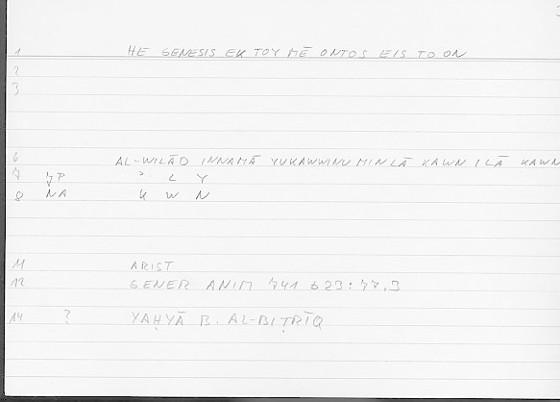 1 HE GENESIS EK TOY MĒ ONTOS EIS TO ON
2
3
6 AL-WILĀD INNAMĀ YUKAWWINU MIN LĀ KAWN ILĀ KAWN
7 JP ʾ L Y
8 NA K W N
11 ARIST
12 GENER ANIM 741 b23: 77,3
14 ? YAḤYĀ B. AL-BIṬRĪQ